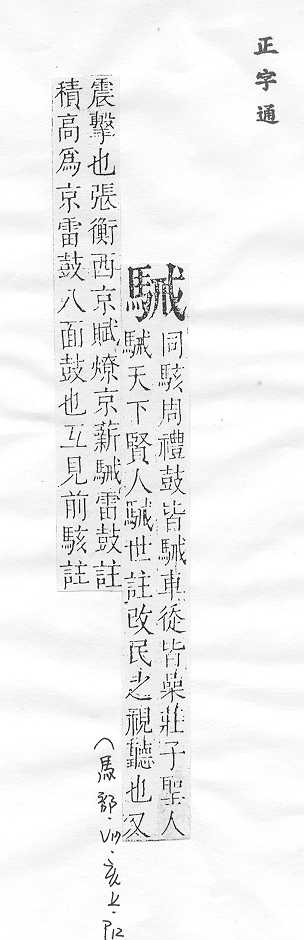 正字通
駴
同駭周禮鼓皆駴車徒皆譟莊子聖人
駴天下賢人駴世註改民之視聽也又
震擊也張衡西京賦燎京薪駴雷鼓註
積高為京雷鼓八面鼓也互見前駭註
(馬部.